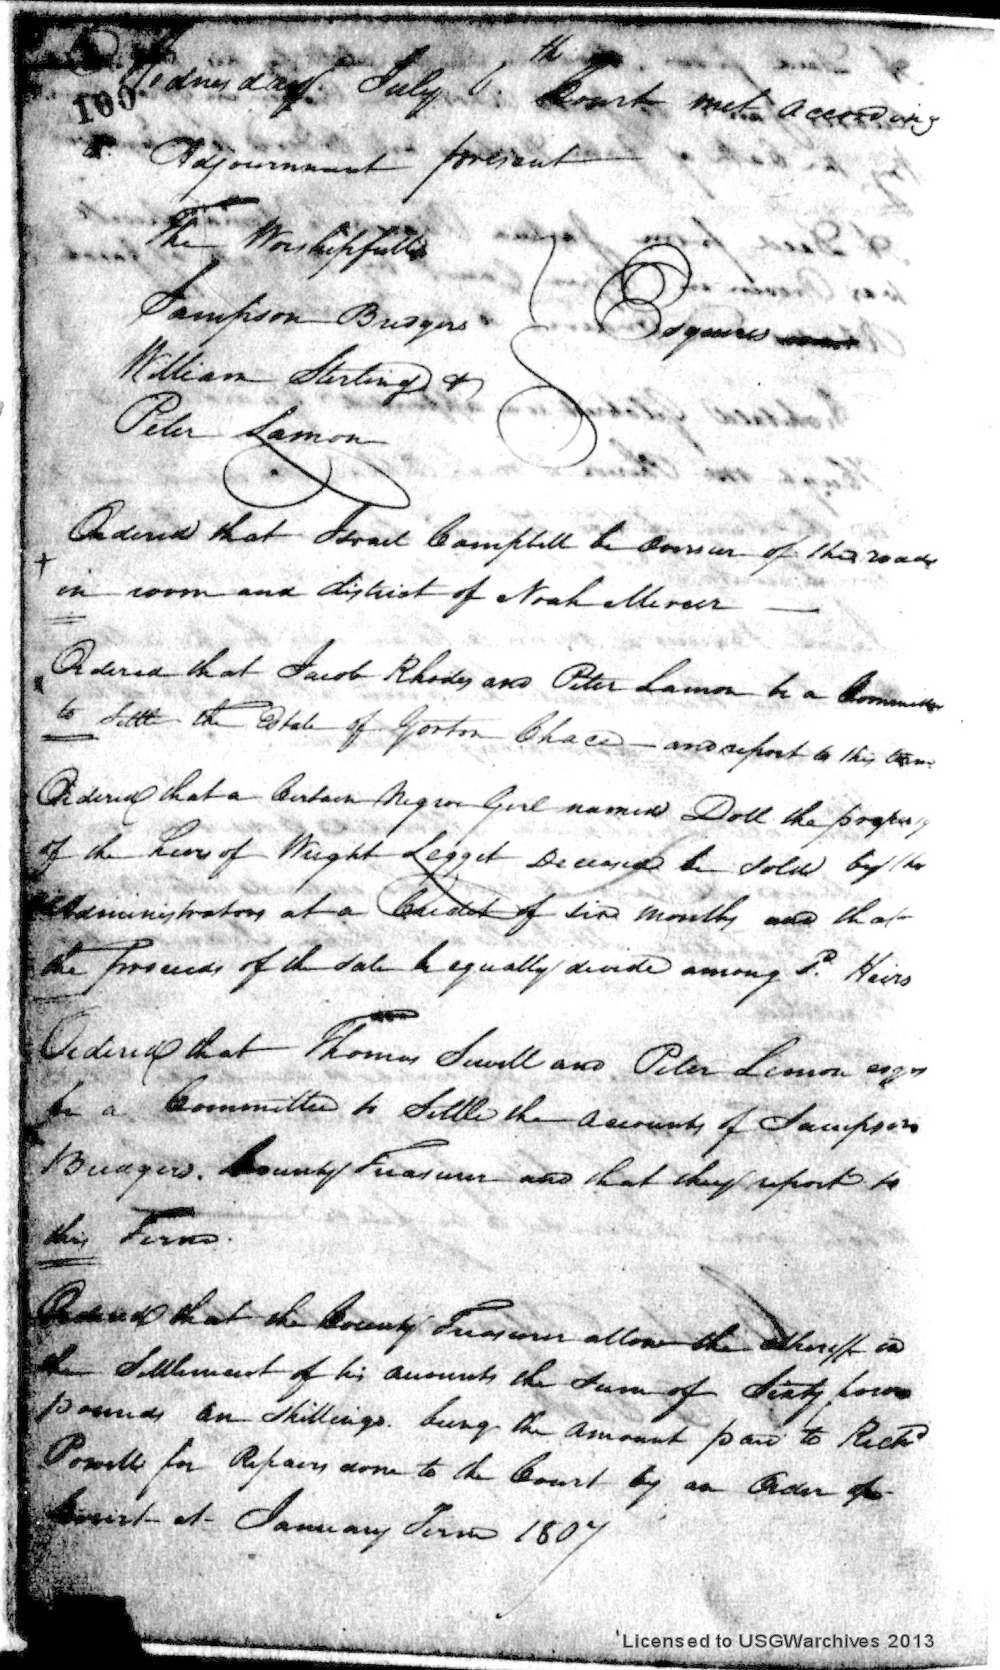 100
Wednesday. July 6.th Court met according
to Adjournment present
The Worshipfull
Sampson Bridgers
William Sterling &
Peter Lamon
Esquires
Ordered that Israel Campbell be overseer of the road
in room and district of Noah Mercer
Ordered that Jacob Rhodes and Peter Lamon be a Committee
to Settle the Estate of Gorton Chace and report to this term
Ordered that a Certain Negroe Girl named Doll the property
of the heirs of Wright Legget Deceased be sold by the
Administrators at a Credit of six months and that
the proceeds of the sale be equally divide among Sd. Heirs
Ordered that Thomas Sewell and Peter Lemon esqrs
be a Committee to Settle the accounts of Sampson
Bridgers. County Treasurer and that they report to
this Term.
Ordered that the County Treasurer allow the Sheriff in
the Settlement of his accounts the sum of Sixty four
pounds shillings. being the amount paid to Richd
Powell for Repairs done to the Court by an Order of
Court at January Term 1807
Licensed to USGWarchives 2013